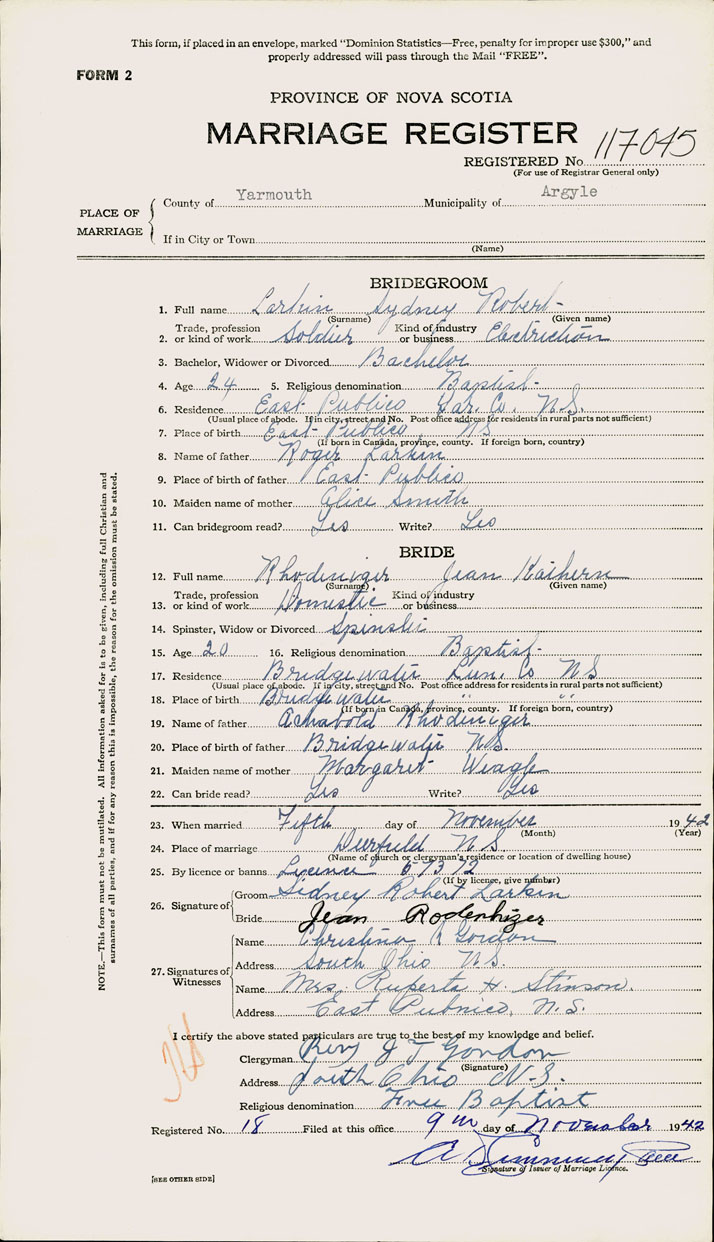 This form, if placed in an envelope, marked "Dominion Statistics—Free, penalty for improper use $300," and
properly addressed will pass through the Mail "FREE".
FORM 2
PROVINCE OF NOVA SCOTIA
MARRIAGE REGISTER
REGISTERED No. 117045
(For use of Registrar General only)
PLACE OF MARRIAGE
County of Yarmouth Municipality of Argyle
If in City or Town
(Name)
BRIDEGROOM
1. Full name Larkin Sydney Robert
(Surname) (Given name)
2. Trade, profession or kind of work Soldier Kind of industry or business Electrician
3. Bachelor, Widower or Divorced Bachelor
4. Age 24 5. Religious denomination Baptist
6. Residence East Publico Yar. Co. N.S.
(Usual place of abode. If in city, street and No. Post office address for residents in rural parts not sufficient)
7. Place of birth East Publico NS
(If born in Canada, province, county. If foreign born, country)
8. Name of father Roger Larkin
9. Place of birth of father East Publico
10. Maiden name of mother Alice Smith
11. Can bridegroom read? Yes Write? Yes
BRIDE
12. Full name Rhodeniger Jean Kathern
(Surname) (Given name)
13. Trade, profession or kind of work Domestic Kind of industry or business
14. Spinster, Widow or Divorced Spinster
15. Age 20 16. Religious denomination Baptist
17. Residence Bridgewater Lun. Co NS
(Usual place of abode. If in city, street and No. Post office address for residents in rural parts not sufficient)
18. Place of birth Bridgewater " "
(If born in Canada, province, county. If foreign born, country)
19. Name of father Rhodeniger
20. Place of birth of father Bridgewater N.S.
21. Maiden name of mother Margaret Weagle
22. Can bride read? Yes Write? Yes
23. When married Fifth day of November 1942
(Month) (Year)
24. Place of marriage Deerfield N.S.
(Name of church or clergyman's residence or location of dwelling house)
25. By licence or banns Lycence 57372
(If by licence, give number)
26. Signature of
Groom Sidney Robert Larkin
Bride Jean Rodenhizer
27. Signatures of Witnesses
Name Christina R Gordon
Address South Ohio N.S.
Name Mrs. Ruperta H. Stinson.
Address East Pubnico, N.S.
I certify the above stated particulars are true to the best of my knowledge and belief.
Clergyman Rev J T Gordon
(Signature)
Address South Ohio N.S.
Religious denomination Free Baptist
Registered No. 18 Filed at this office 9th day of November 1942
Signature of Issuer of Marriage Licence.
[SEE OTHER SIDE]
NOTE.—This form must not be mutilated. All information asked for is to be given, including full Christian and
surnames of all parties, and if for any reason this is impossible, the reason for the omission must be stated.